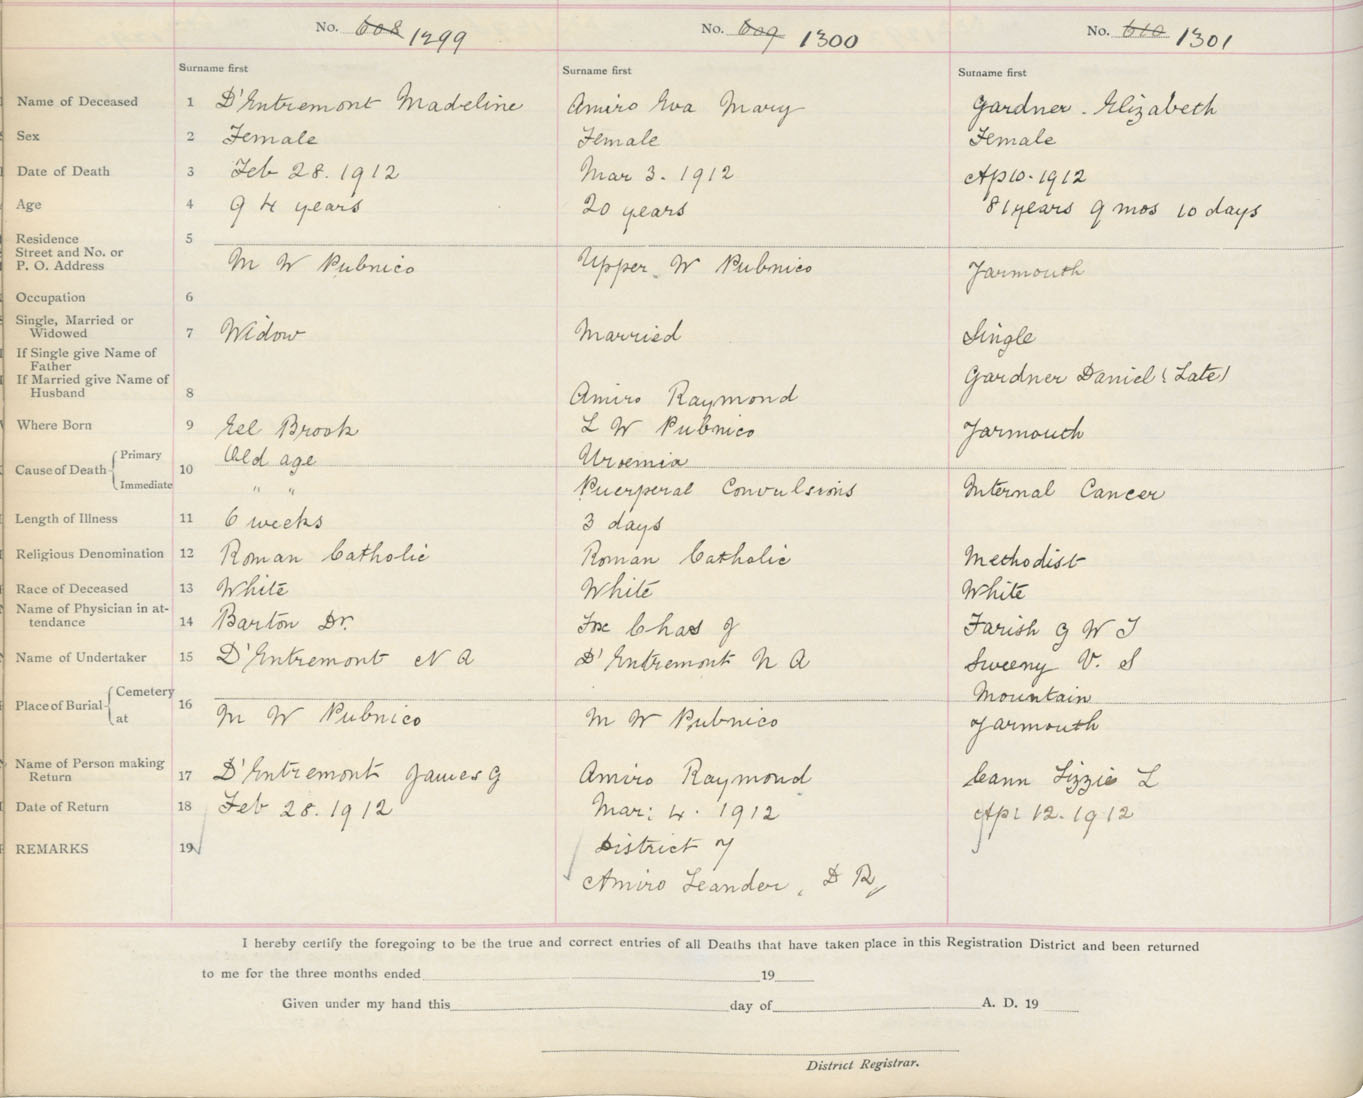 No. 608 1299 No. 609 1300 No. 610 1301
Surname first Surname first Surname first
Name of Deceased 1 D'Entremont Madeline Amiro Eva Mary Gardner . Elizabeth
Sex 2 Female Female Female
Date of Death 3 Feb 28. 1912 Mar 3. 1912 Ap 10. 1912
Age 4 94 years 20 years 81 years 9 mos 10 days
Residence 5
Street and No. or
P. O. Address M W Pubnico Upper W Pubnico Yarmouth
Occupation 6
Single, Married or
Widowed 7 Widow Married Single
If Single give Name of
Father Gardner Daniel (Late)
If Married give Name of
Husband 8 Amiro Raymond
Where Born 9 Eel Brook L W Pubnico Yarmouth
Primary Old age Uroemia
Cause of Death 10
Immediate " " Puerperal Convulsions Internal Cancer
Length of Illness 11 6 weeks 3 days
Religious Denomination 12 Roman Catholic Roman Catholic Methodist
Race of Deceased 13 White White White
Name of Physician in at-
tendance 14 Barton Dr. Fox Chas J Farish G W T
Name of Undertaker 15 D'Entremont N A D'Entremont N A Sweeny V. S
Cemetery Mountain
Place of Burial 16
at M W Pubnico M W Pubnico Yarmouth
Name of Person making
Return 17 D'Entremont James G Amiro Raymond Cann Lizzie L
Date of Return 18 Feb 28. 1912 Mar: 4. 1912 Apl 12. 1912
REMARKS 19 District 7
Amiro Leander, D R
I hereby certify the foregoing to be the true and correct entries of all Deaths that have taken place in this Registration District and been returned
to me for the three months ended 19
Given under my hand this day of A. D. 19
District Registrar.